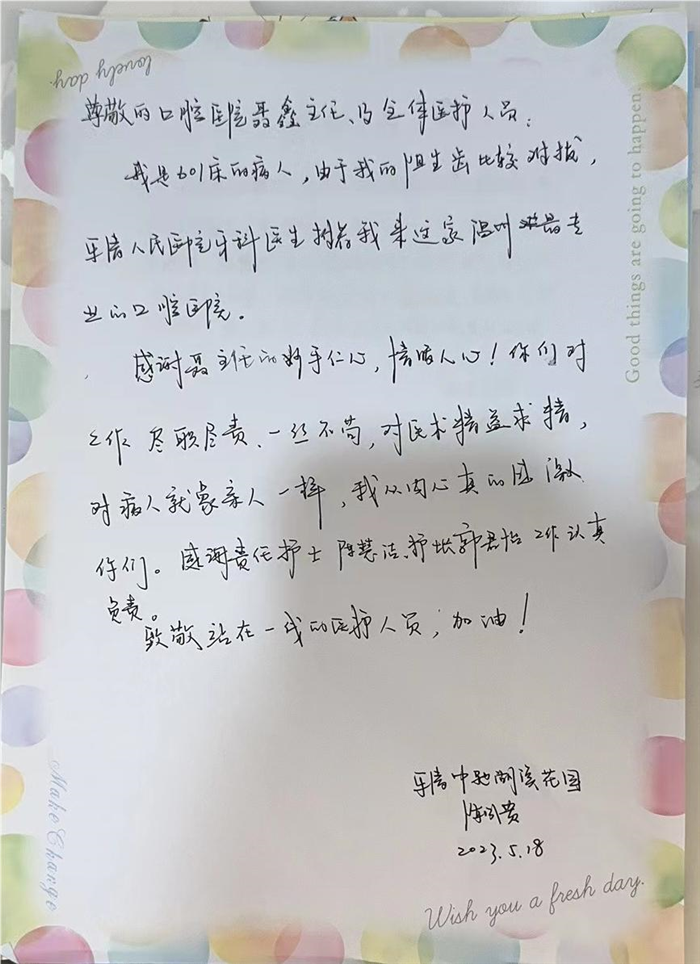 lovely day.
Good things are going to happen.
尊敬的口腔医院聂鑫主任、及全体医护人员:
我是601床的病人,由于我的阻生齿比较难拔,
乐清人民医院牙科医生推荐我来这家温州最专
业的口腔医院。
感谢聂主任的妙手仁心,情暖人心!你们对
工作尽职尽责、一丝不苟,对医术精益求精,
对病人就象亲人一样,我从内心真的感激
你们。感谢责任护士陈慧洁、护士长郭君怡工作认真
负责。
致敬站在一线的医护人员,加油!
乐清中驰湖滨花园
2023.5.18
Make Change
Wish you a fresh day.